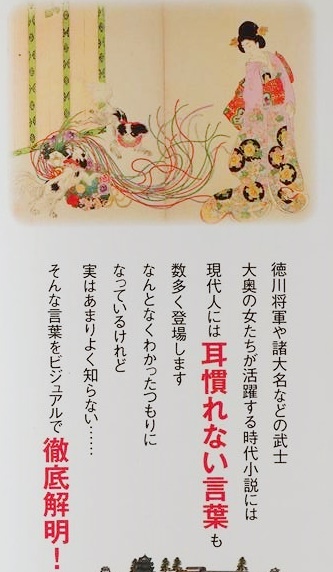 徳川将軍や諸大名などの武士
大奥の女たちが活躍する時代小説には
現代人には耳慣れない言葉も
数多く登場します
なんとなくわかったつもりに
なっているけれど
実はあまりよく知らない……
そんな言葉をビジュアルで徹底解明！